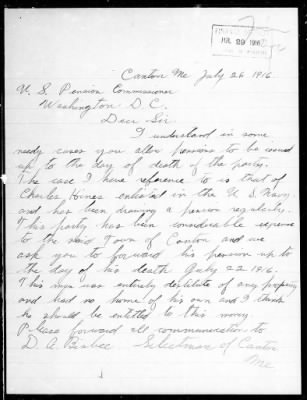 JUL 29 1916
Canton Me July 26 1916
U. S. Pension Commissioner
Washington D.C.
Dear Sir
I understand in some
needy cases you allow pensions to be issued
up to the day of death of the party.
The case I have reference to is that of
Charles Hines enlisted in the U S Navy
and has been drawing a pension regularly.
This party has been considerable expense
to the said Town of Canton and we
ask you to forward his pension up to
the day of his death July 22 1916.
This man was entirely destitute of any property
and had no home of his own and I think
he should be entitled to this money
Please forward all communication to
D. A. Bisbee Selectman of Canton
Me